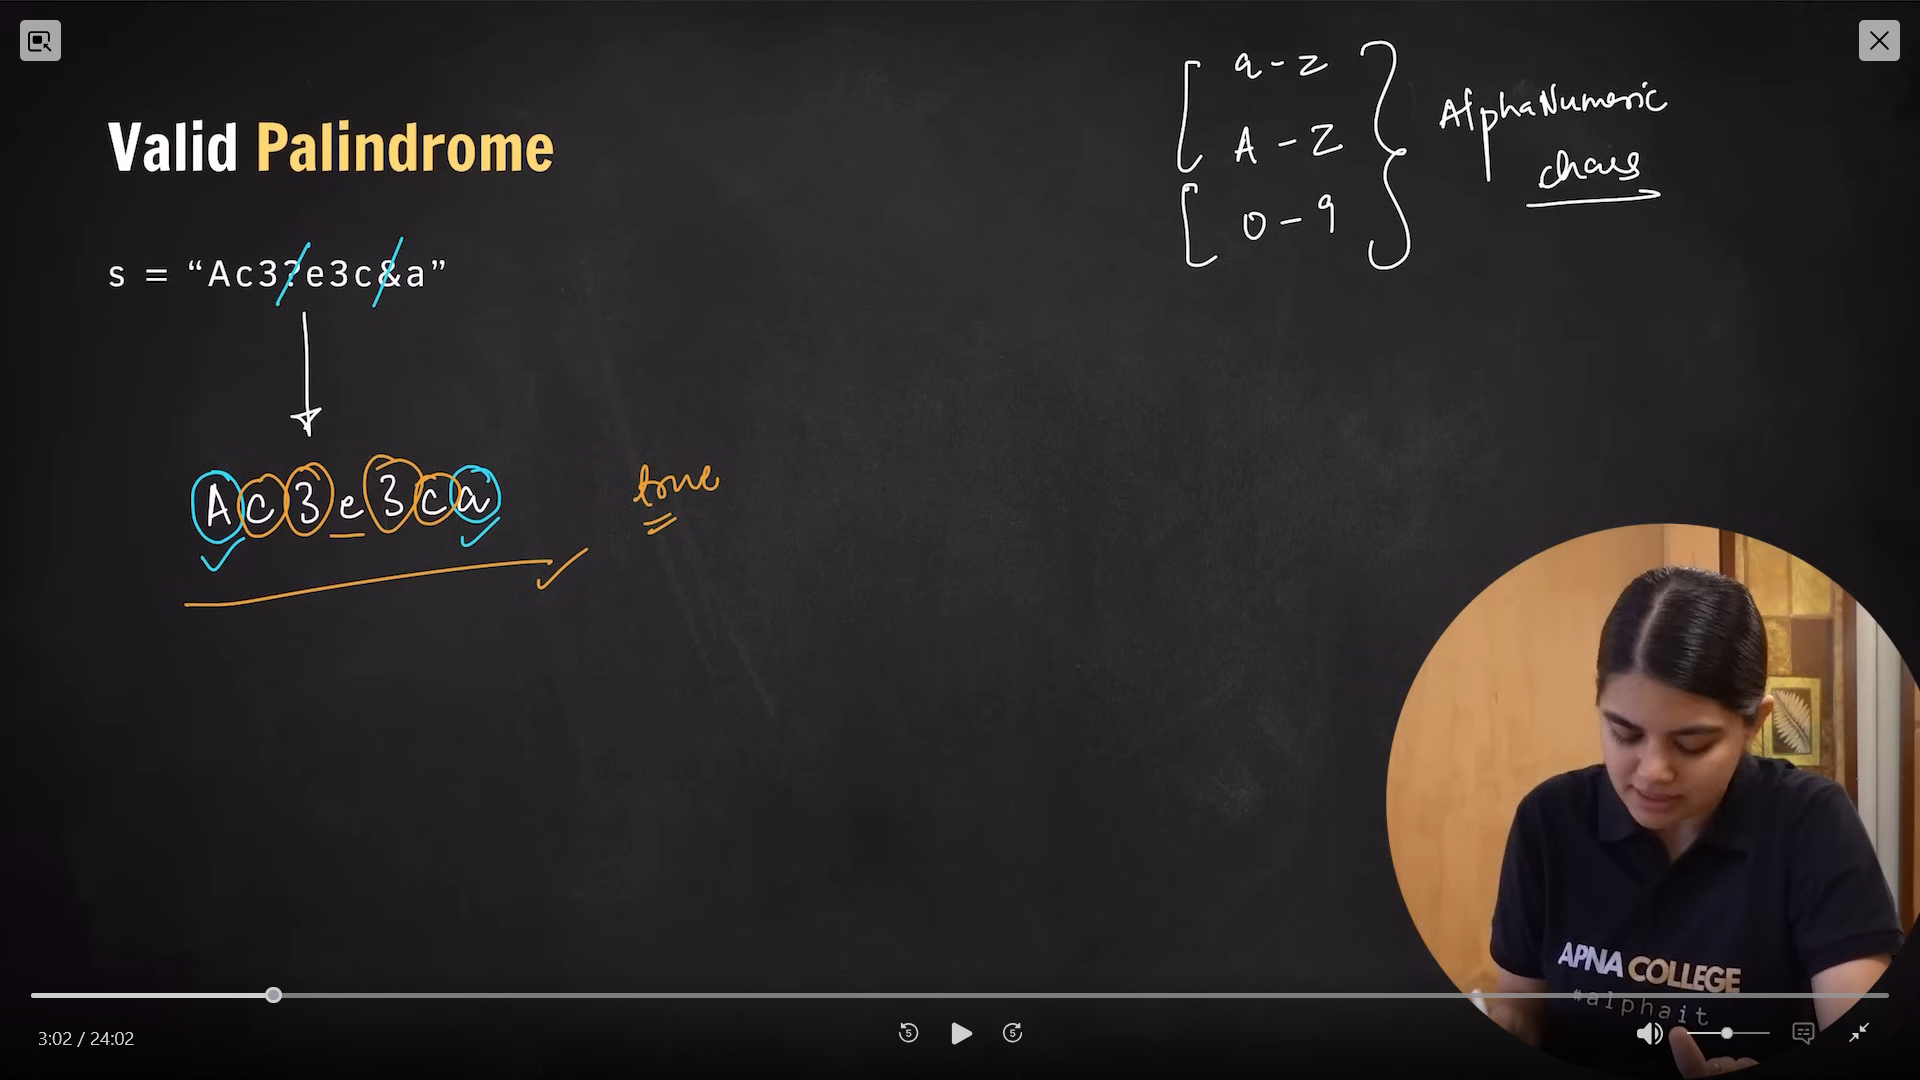 Valid Palindrome
s = “Ac3?e3c&a”
Ac3e3ca
true
a - z
A - Z
0 - 9
AlphaNumeric
chars
APNA COLLEGE
#alphait
5
5
3:02 / 24:02